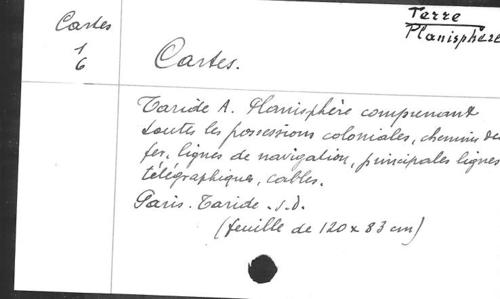 Cartes
1
6
Terre
Planisphère
Cartes.
Taride A. Planisphère comprenant
toutes les possessions coloniales, chemins de
fer, lignes de navigation, principales lignes
télégraphiques, cables.
Paris. Taride. s.d.
(feuille de 120 x 83 cm)